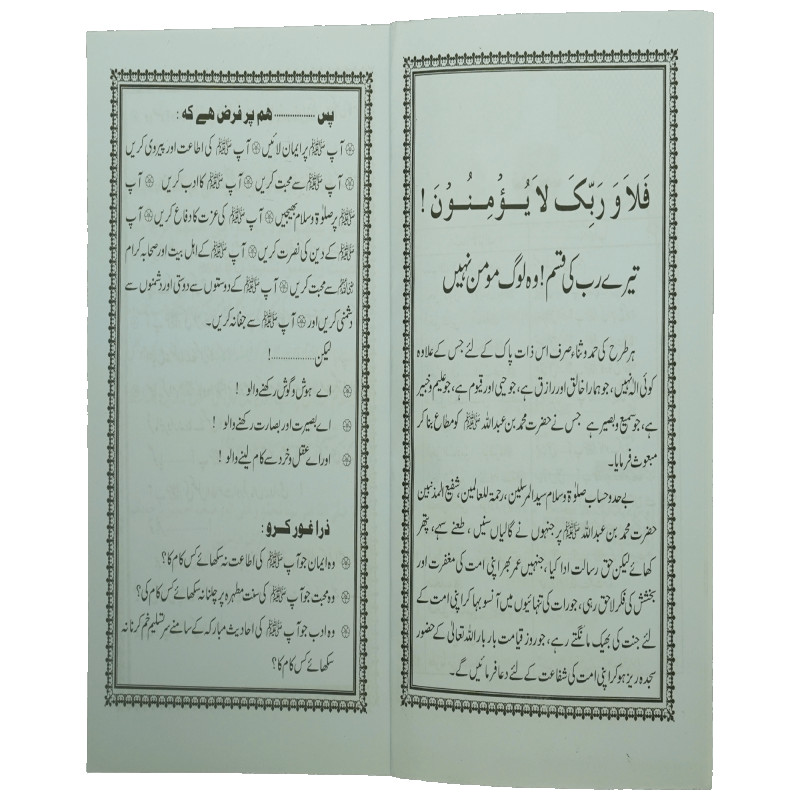 فَلَا وَ رَبِّكَ لَا يُــؤْمِــنُــوْنَ !
تیرے رب کی قسم! وہ لوگ مومن نہیں
ہر طرح کی حمد و ثناء صرف اس ذات پاک کے لئے جس کے علاوہ
کوئی الٰہ نہیں، جو ہمارا خالق اور رازق ہے، جو حیی اور قیوم ہے، جو علیم و خبیر
ہے، جو سمیع و بصیر ہے جس نے حضرت محمد بن عبداللہ ﷺ کو مطاع بنا کر
مبعوث فرمایا۔
بے حد و حساب صلوٰۃ و سلام سید المرسلین، رحمۃ للعالمین، شفیع المذنبین
حضرت محمد بن عبداللہ ﷺ پر جنہوں نے گالیاں سنیں، طعنے سہے، پتھر
کھائے لیکن حق رسالت ادا کیا، جنہیں عمر بھر اپنی امت کی مغفرت اور
بخشش کی فکر لاحق رہی، جو رات کی تنہائیوں میں آنسو بہا کر اپنی امت کے
لئے جنت کی بھیک مانگتے رہے، جو روز قیامت بار بار اللہ تعالیٰ کے حضور
سجدہ ریز ہو کر اپنی امت کی شفاعت کے لئے دعا فرمائیں گے۔
پس ............... ھم پر فرض ھے کہ :
֍ آپ ﷺ پر ایمان لائیں ֍ آپ ﷺ کی اطاعت اور پیروی کریں
֍ آپ ﷺ سے محبت کریں ֍ آپ ﷺ کا ادب کریں ֍ آپ
ﷺ پر صلوٰۃ و سلام بھیجیں ֍ آپ ﷺ کی عزت کا دفاع کریں ֍ آپ
ﷺ کے دین کی نصرت کریں ֍ آپ ﷺ کے اہل بیت اور صحابہ کرام
سے محبت کریں ֍ آپ ﷺ کے دوستوں سے دوستی اور دشمنوں سے
دشمنی کریں اور ֍ آپ ﷺ سے جفا نہ کریں۔
لیکن...............!
֍ اے ہوش و گوش رکھنے والو !
֍ اے بصیرت اور بصارت رکھنے والو !
֍ اور اے عقل و خرد سے کام لینے والو !
ذرا غور کرو :
֍ وہ ایمان جو آپ ﷺ کی اطاعت نہ سکھائے کس کام کا؟
֍ وہ محبت جو آپ ﷺ کی سنت مطہرہ پر چلنا نہ سکھائے کس کام کی؟
֍ وہ ادب جو آپ ﷺ کی احادیث مبارکہ کے سامنے سر تسلیم خم کرنا نہ
سکھائے کس کام کا؟